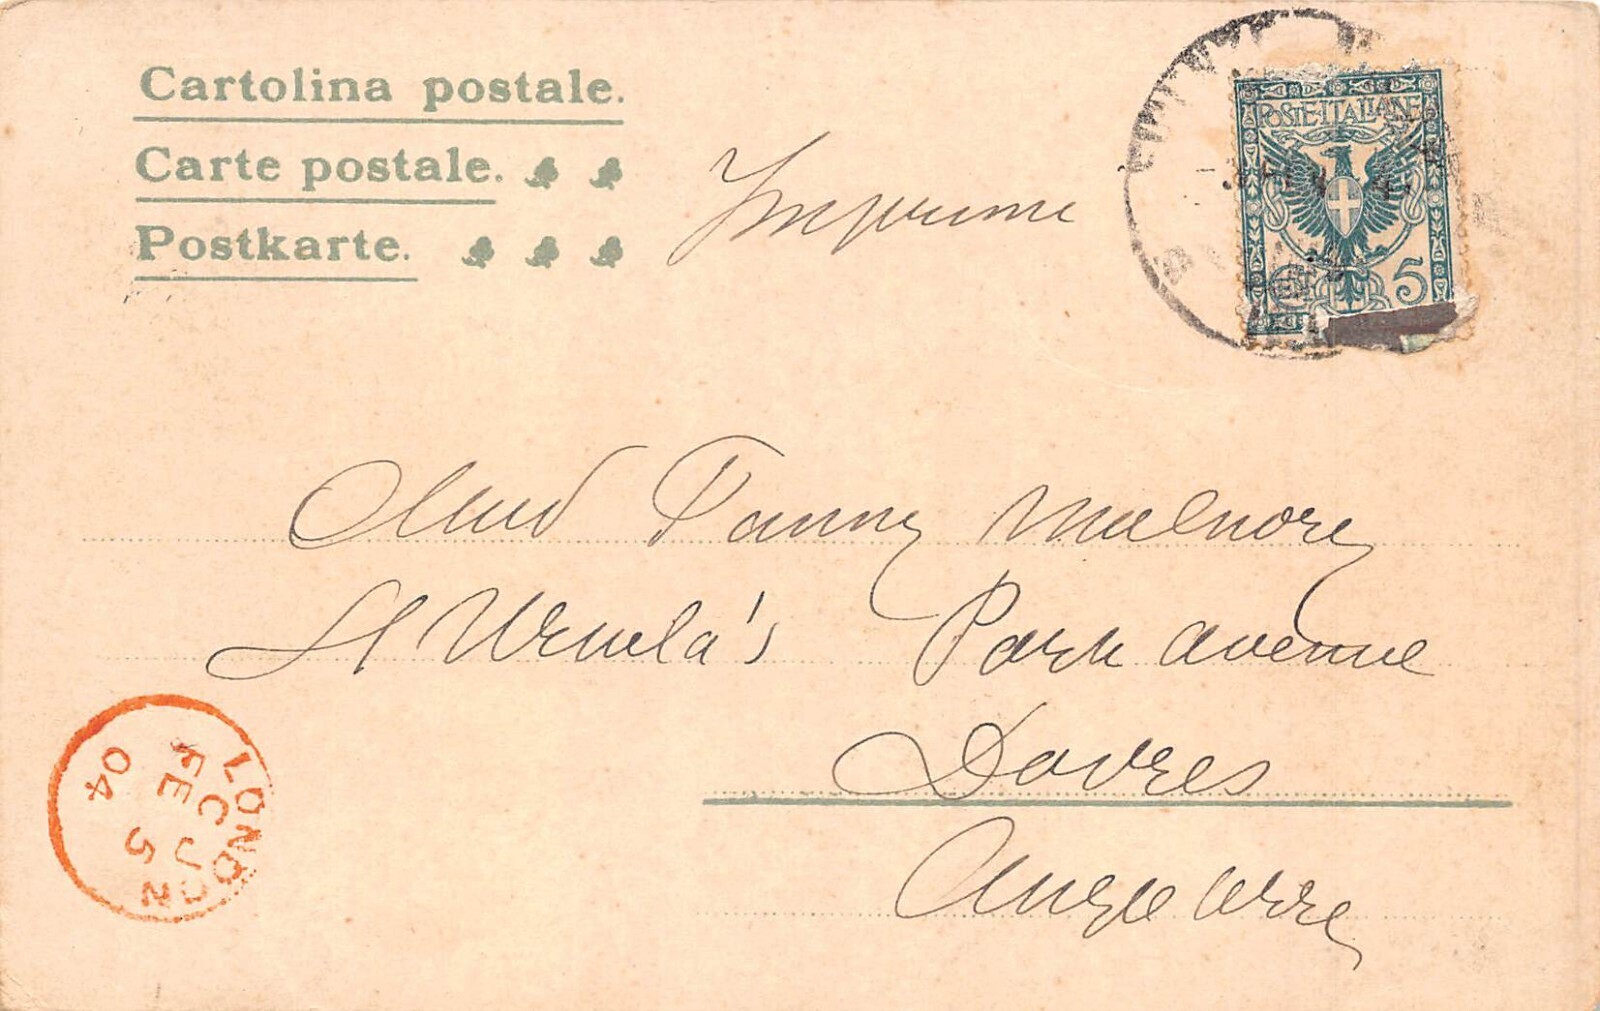 Cartolina postale.
Carte postale.
Postkarte.
Imprime
POSTE ITALIANE
5
Fanny
St Ursula's Park avenue
Dovres
Angleterre
LONDON
FE 5
04